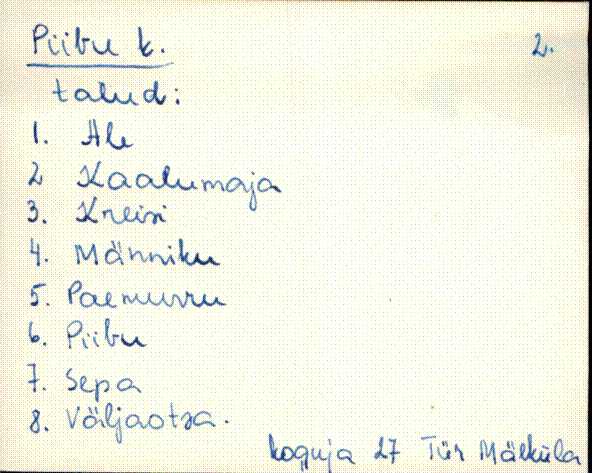 Piibu k. 2.
talud:
1. Ale
2 Kaalumaja
3. Kreisi
4. Männiku
5. Paemurru
6. Piibu
7. Sepa
8. Väljaotsa.
koguja 27 Tür Mäeküla